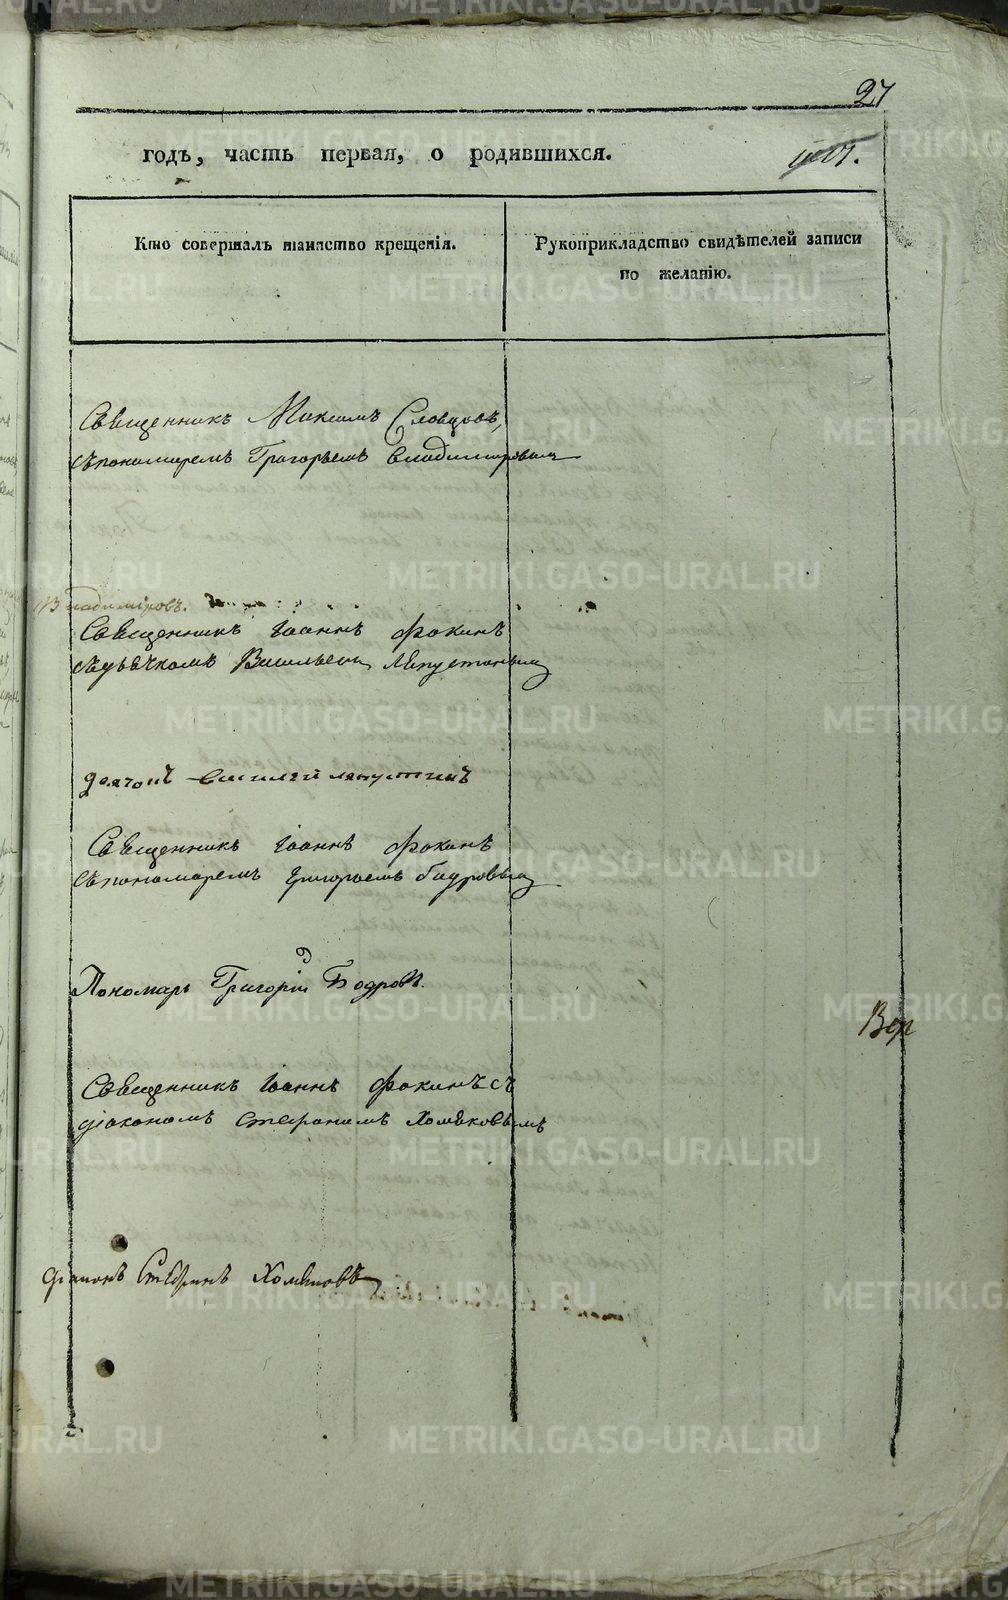 27
годъ, часть первая, о родившихся.
Кто совершалъ таинство крещенія.
Рукоприкладство свидѣтелей записи
по желанію.
Священникъ Максимъ Словцовъ,
съ пономаремъ Григорьемъ Владимировымъ
Владиміровъ.
Священникъ Іоаннъ Фокинъ
съ дьячкомъ Васильемъ Лапустинымъ
дьячокъ Василей лапустинъ
Священникъ Іоаннъ Фокинъ
съ пономаремъ Григорьемъ Бодровымъ
Пономарь Григорій Бодровъ.
Вер
Священникъ Іоаннъ Фокинъ съ
діакономъ Стефаномъ Хомяковымъ
діаконъ Стефанъ Хомяковъ
METRIKI.GASO-URAL.RU